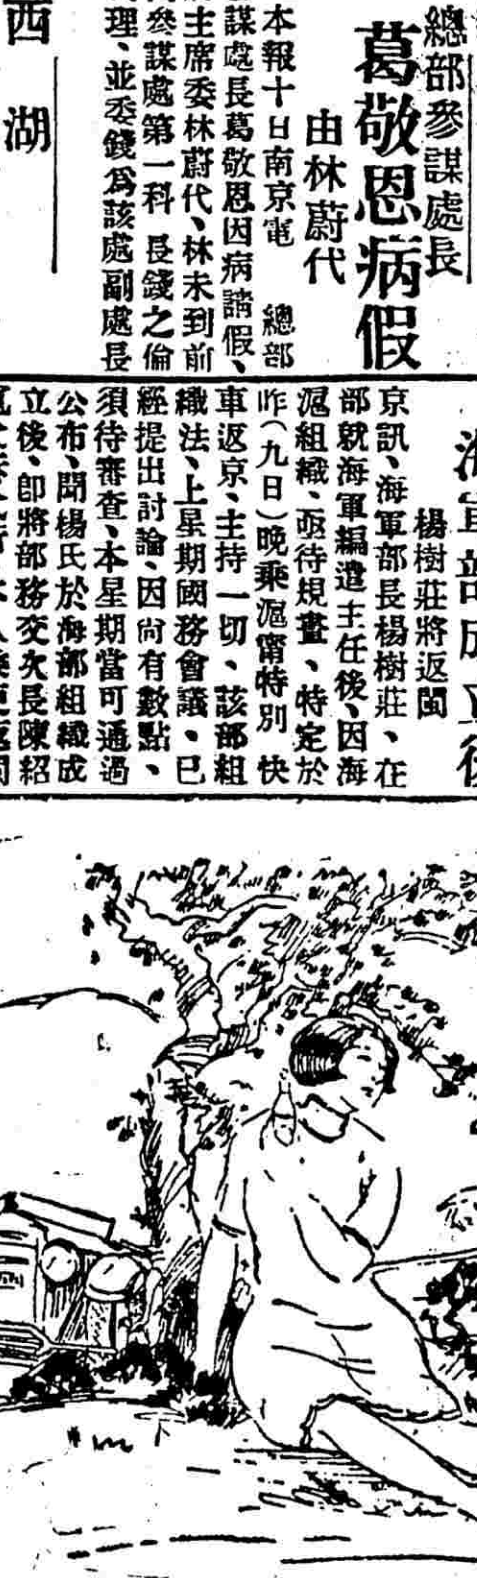 總部參謀處長
葛敬恩病假
由林蔚代
本報十日南京電　總部
謀處長葛敬恩因病請假、
主席委林蔚代、林未到前
參謀處第一科　長錢之倫
理、並委錢為該處副處長
西　湖
楊樹莊將返閩
京訊、海軍部長楊樹莊、在
部就海軍編遣主任後、因海
滬組織、亟待規畫、特定於
昨（九日）晚乘滬甯特別　快
車返京、主持一切、該部組
織法、上星期國務會議、已
經提出討論、因尚有數點、
須待審查、本星期當可通過
公布、聞楊氏於海部組織成
立後、卽將部務交次長陳紹